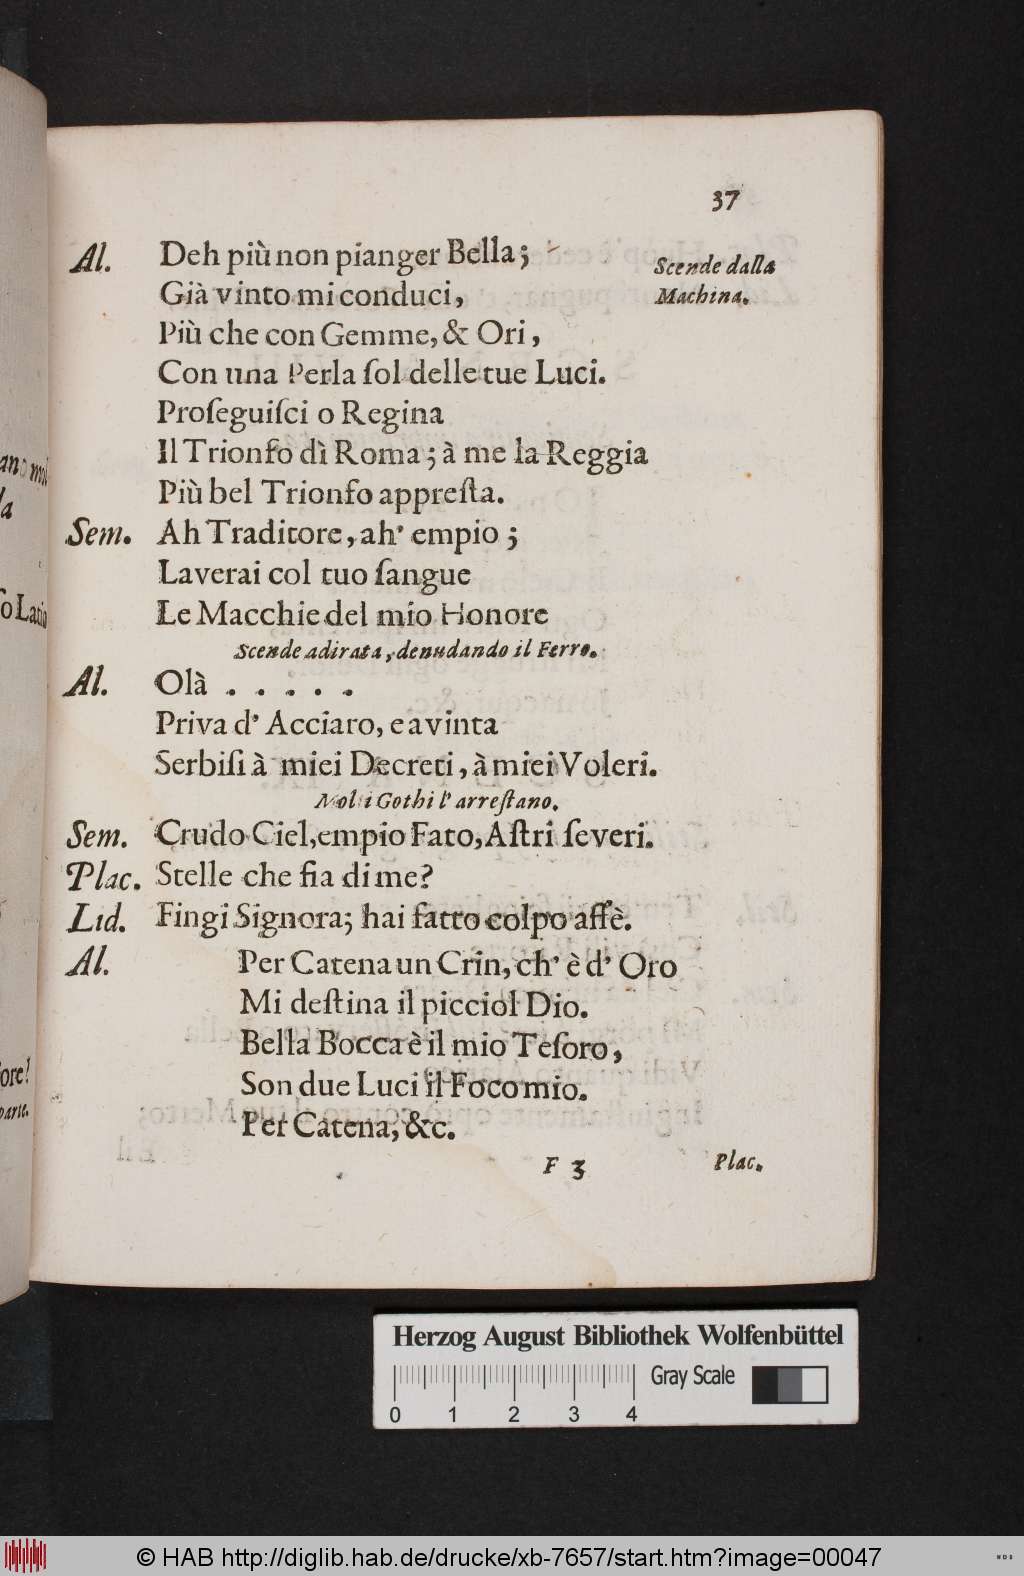 37
Al. Deh più non pianger Bella;
Scende dalla
Machina.
Già vinto mi conduci,
Più che con Gemme, & Ori,
Con una Perla ſol delle tue Luci.
Proſeguiſci o Regina
Il Trionfo dì Roma; à me la Reggia
Più bel Trionfo appreſta.
Sem. Ah Traditore, ah' empio;
Laverai col tuo ſangue
Le Macchie del mio Honore
Scende adirata, denudando il Ferro.
Al. Olà . . . . .
Priva d' Acciaro, e avinta
Serbiſi à miei Decreti, à miei Voleri.
Molti Gothi l' arreſtano.
Sem. Crudo Ciel, empio Fato, Aſtri ſeveri.
Plac. Stelle che fia di me?
Lid. Fingi Signora; hai fatto colpo affè.
Al. Per Catena un Crin, ch' è d' Oro
Mi deſtina il picciol Dio.
Bella Bocca è il mio Teſoro,
Son due Luci il Foco mio.
Per Catena, &c.
F 3 Plac.
ano mol
la
ſo Latio
ſore!
parte.
Herzog August Bibliothek Wolfenbüttel
Gray Scale
0 1 2 3 4
© HAB http://diglib.hab.de/drucke/xb-7657/start.htm?image=00047